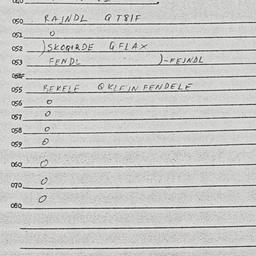 050 RAJNDL GTSIF
051 O
052 )SKOQIRDE GFLAX
053 FENDL )-FEJNDL
055 BEKELE QKLFIN FENDELE
056 O
057 O
058 O
059 O
060 O
070 O
080 O